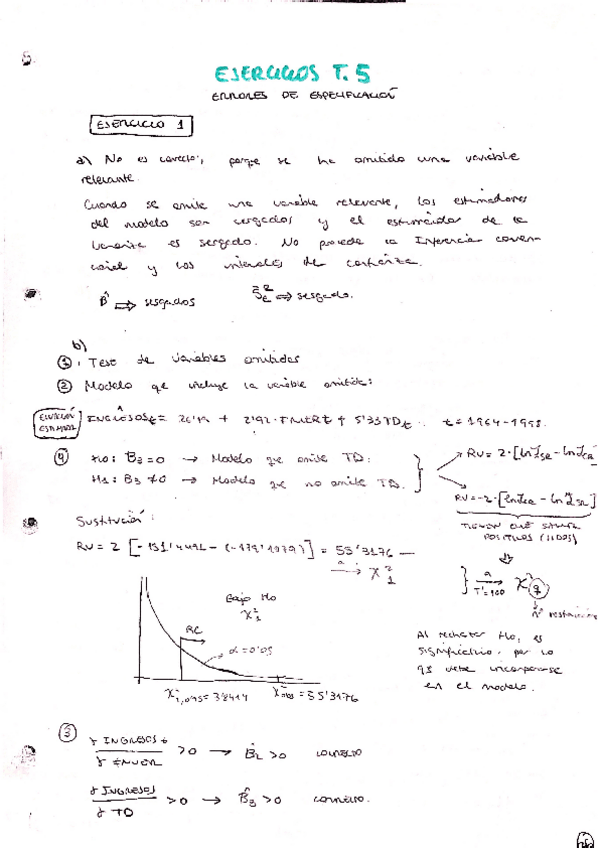 EJERCICIOS T.5
ERRORES DE ESPECIFICACIÓN
EJERCICIO 1
a) No es correcto, porque se ha omitido una variable
relevante.
Cuando se omite una variable relevante, los estimadores
del modelo son sesgados y el estimador de la
varianza es sesgado. No procede la Inferencia conven-
cional y los intervalos de confianza.
B̂ ⇒ sesgados ⇒ sesgado.
b)
① Test de variables omitidas
② Modelo que incluye la variable omitida:
ECUACIÓN
ESTIMADA
INGRESOSt = + 2'92 · + 5'33 TDt t = 1964-1998.
④ H0: B3 = 0 → Modelo que omite TD.
H1: B3 ≠ 0 → Modelo que no omite TD.
RV = 2·[ln LSR - ln LCR]
RV = -2·[ln LCR - ln LSR]
TIENEN QUE SALIR
POSITIVOS (LOS DOS)
Sustitución:
RV = 2 = 55'3176
a → χ²1
Bajo H0
χ²1
RC
α = 0'05
χ²1,0'95 = 3'8414
χ²obs = 55'3176
a → χ² q
nº restricciones
Al rechazar H0, es
significativo, por lo
que debe incorporarse
en el modelo.
③
INGRESOS t > 0 → B̂2 > 0 correcto
INGRESOS > 0 → B̂3 > 0 correcto.
TD